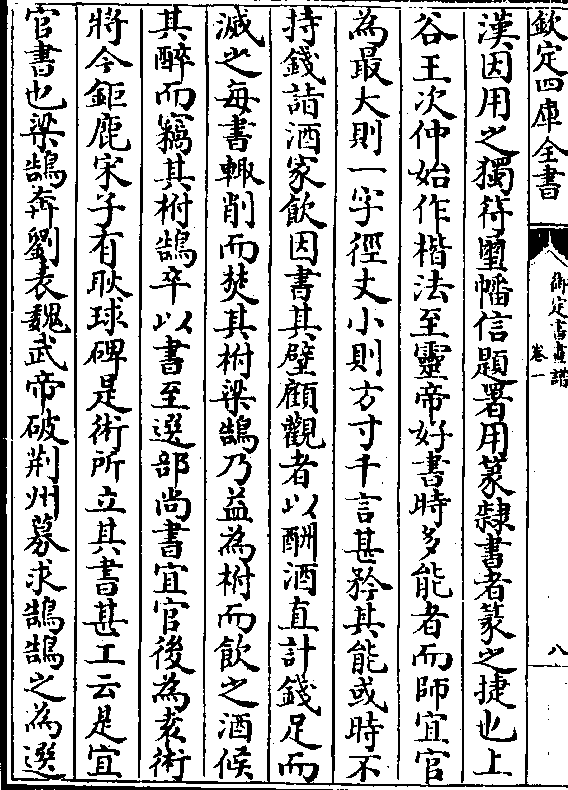 欽定四庫全書
御定書畫譜
卷一
八
漢因用之獨符璽幡信題署用篆隸書者篆之捷也上
谷王次仲始作楷法至靈帝好書時多能者而師宜官
為最大則一字徑丈小則方寸千言甚矜其能或時不
持錢詣酒家飲因書其壁顧觀者以酬酒直計錢足而
滅之每書輙削而焚其柎梁鵠乃益為柎而飲之酒候
其醉而竊其柎鵠卒以書至選部尚書宜官後為袁術
將今鉅鹿宋子有耿球碑是術所立其書甚工云是宜
官書也梁鵠奔劉表魏武帝破荆州募求鵠鵠之為選